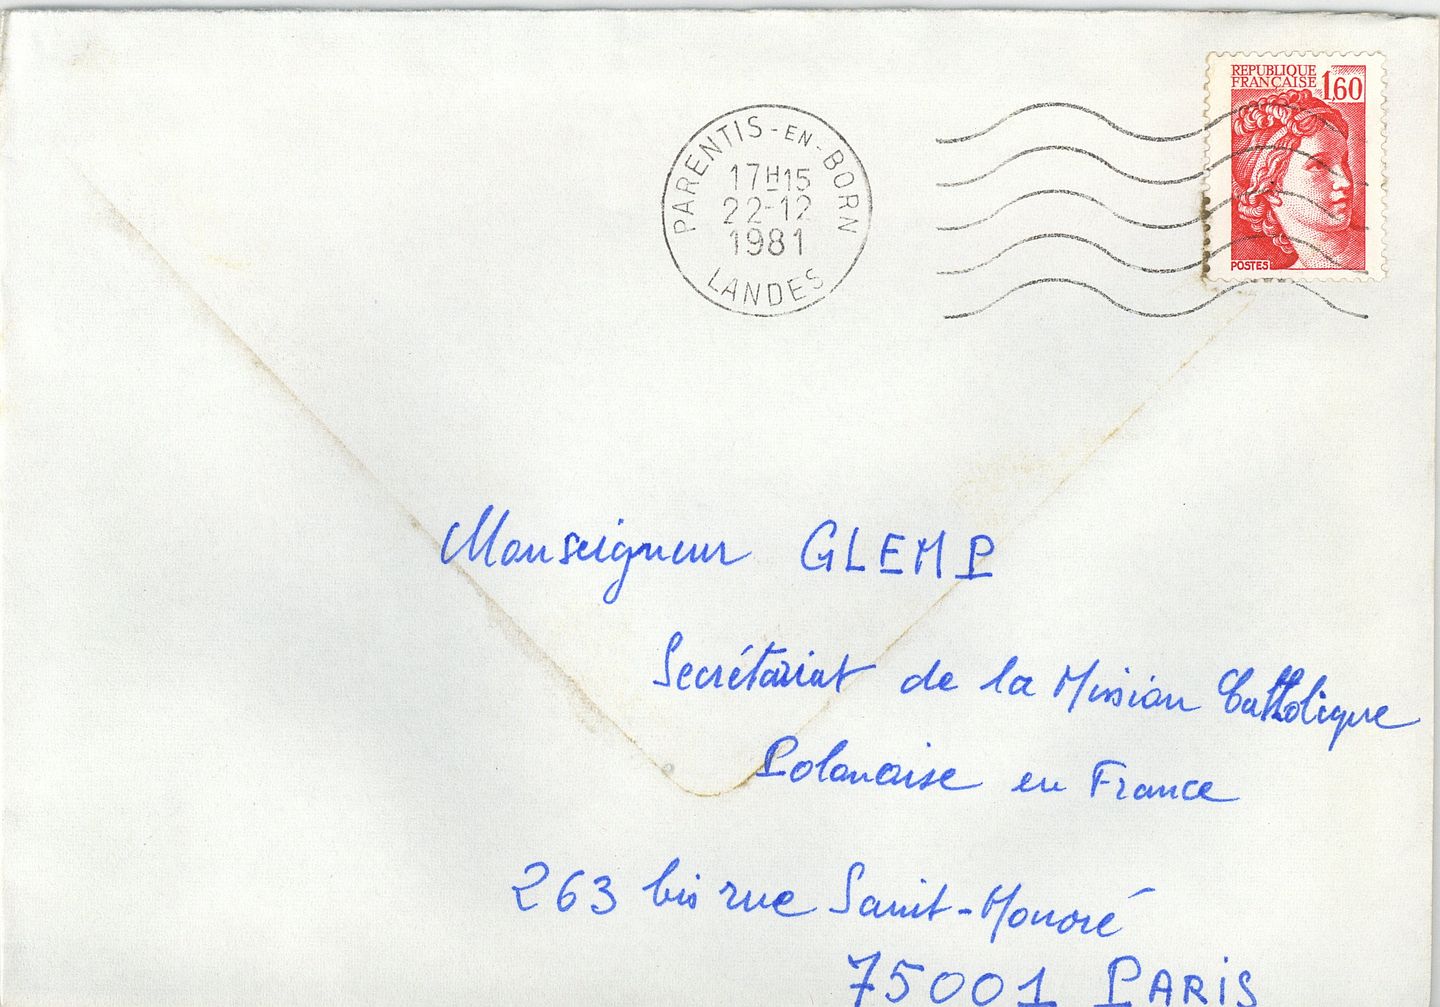 REPUBLIQUE
FRANÇAISE 1,60
POSTES
PARENTIS-EN-BORN
17H15
22-12
1981
LANDES
Monseigneur GLEMP
Secrétariat de la Mission Catholique
Polonaise en France
263 bis rue Saint-Honoré
75001 PARIS